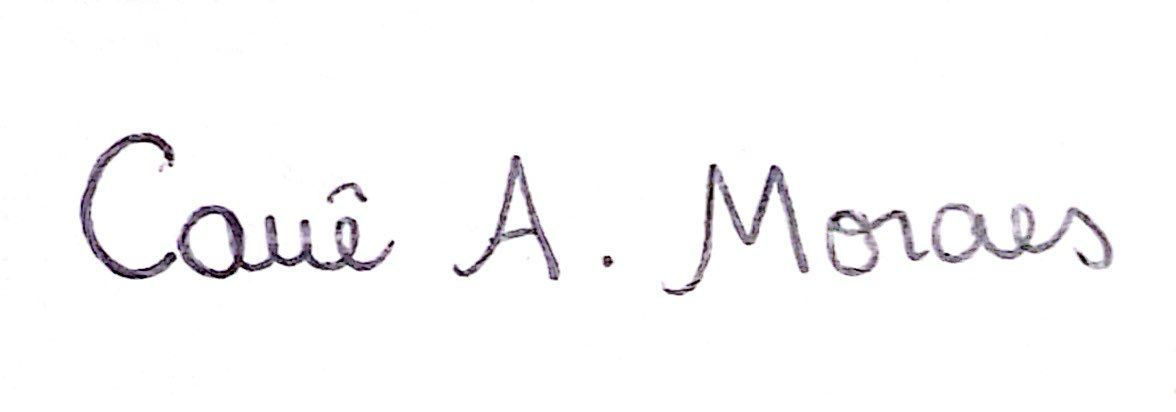 Cauê A. Moraes